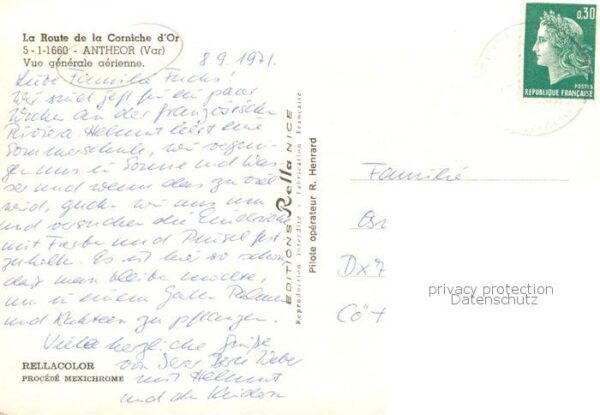 La Route de la Corniche d'Or
5-1-1660 - ANTHEOR (Var)
Vue générale aérienne.
8.9.1971.
Liebe Familie Fuchs!
Wir sind jetzt für ein paar
Wochen an der französischen
Riviera Helmut leitet eine
Sommerschule, wir vergnü-
gen uns in Sonne und Was-
ser und wenn das zu viel
wird, gucken wir uns um
und versuchen die Eindrücke
mit Farbe und Pinsel fest-
zuhalten. Es ist hier so schön
daß man bleiben möchte,
um in einem Garten Palmen
und Kakteen zu pflanzen.
Viele herzliche Grüße
von Weber
mit Helmut
und den Kindern
RELLACOLOR
PROCÉDÉ MEXICHROME
EDITIONS Rella NICE
Reproduction Interdite - Fabrication Française
Pilote opérateur R. Henrard
0,30
POSTES
REPUBLIQUE FRANÇAISE
Familie
privacy protection
Datenschutz